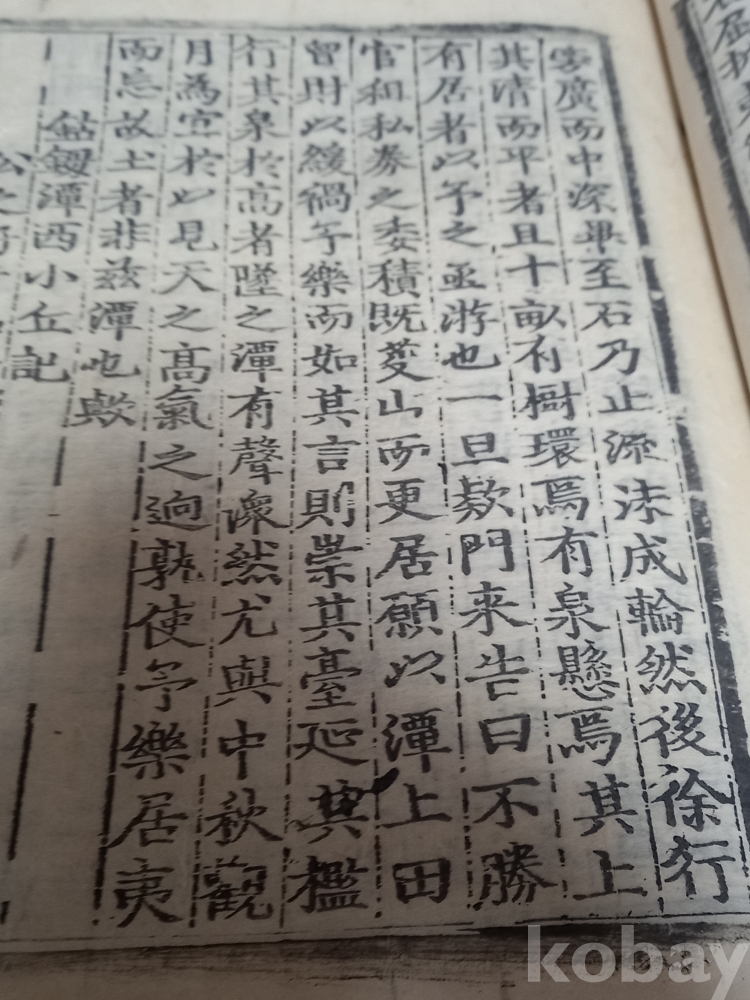 旁廣而中深畢至石乃止流沫成輪然後徐行
其清而平者且十畝有樹環焉有泉懸焉其上
有居者以予之亟游也一旦欵門来告曰不勝
官租私券之委積既芟山而更居願以潭上田
貿財以緩禍予樂而如其言則崇其臺延其檻
行其泉於高者墜之潭有聲潀然尤與中秋觀
月為宜於以見天之高氣之逈孰使予樂居夷
而忘故土者非兹潭也歟
鈷鉧潭西小丘記
kobay